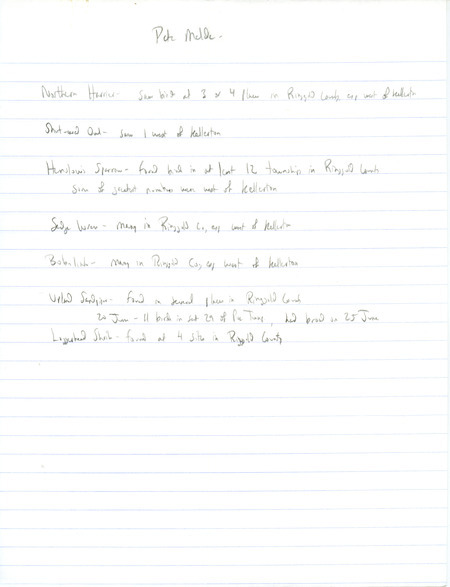 Pete
Northern Harrier - saw birds at 3 or 4 places in Ringgold County, esp west of Kellerton
Short-eared Owl - saw 1 west of Kellerton
Henslow's Sparrow - found birds in at least 12 townships in Ringgold County
some of greatest numbers were west of Kellerton
Sedge Wren - many in Ringgold Co, esp west of Kellerton
Bobolink - many in Ringgold Co, esp west of Kellerton
Upland Sandpiper - found in several places in Ringgold County
20 June - 11 birds in sect 29 of Twp, had brood on 25 June
Loggerhead Shrike - found at 4 sites in Ringgold County